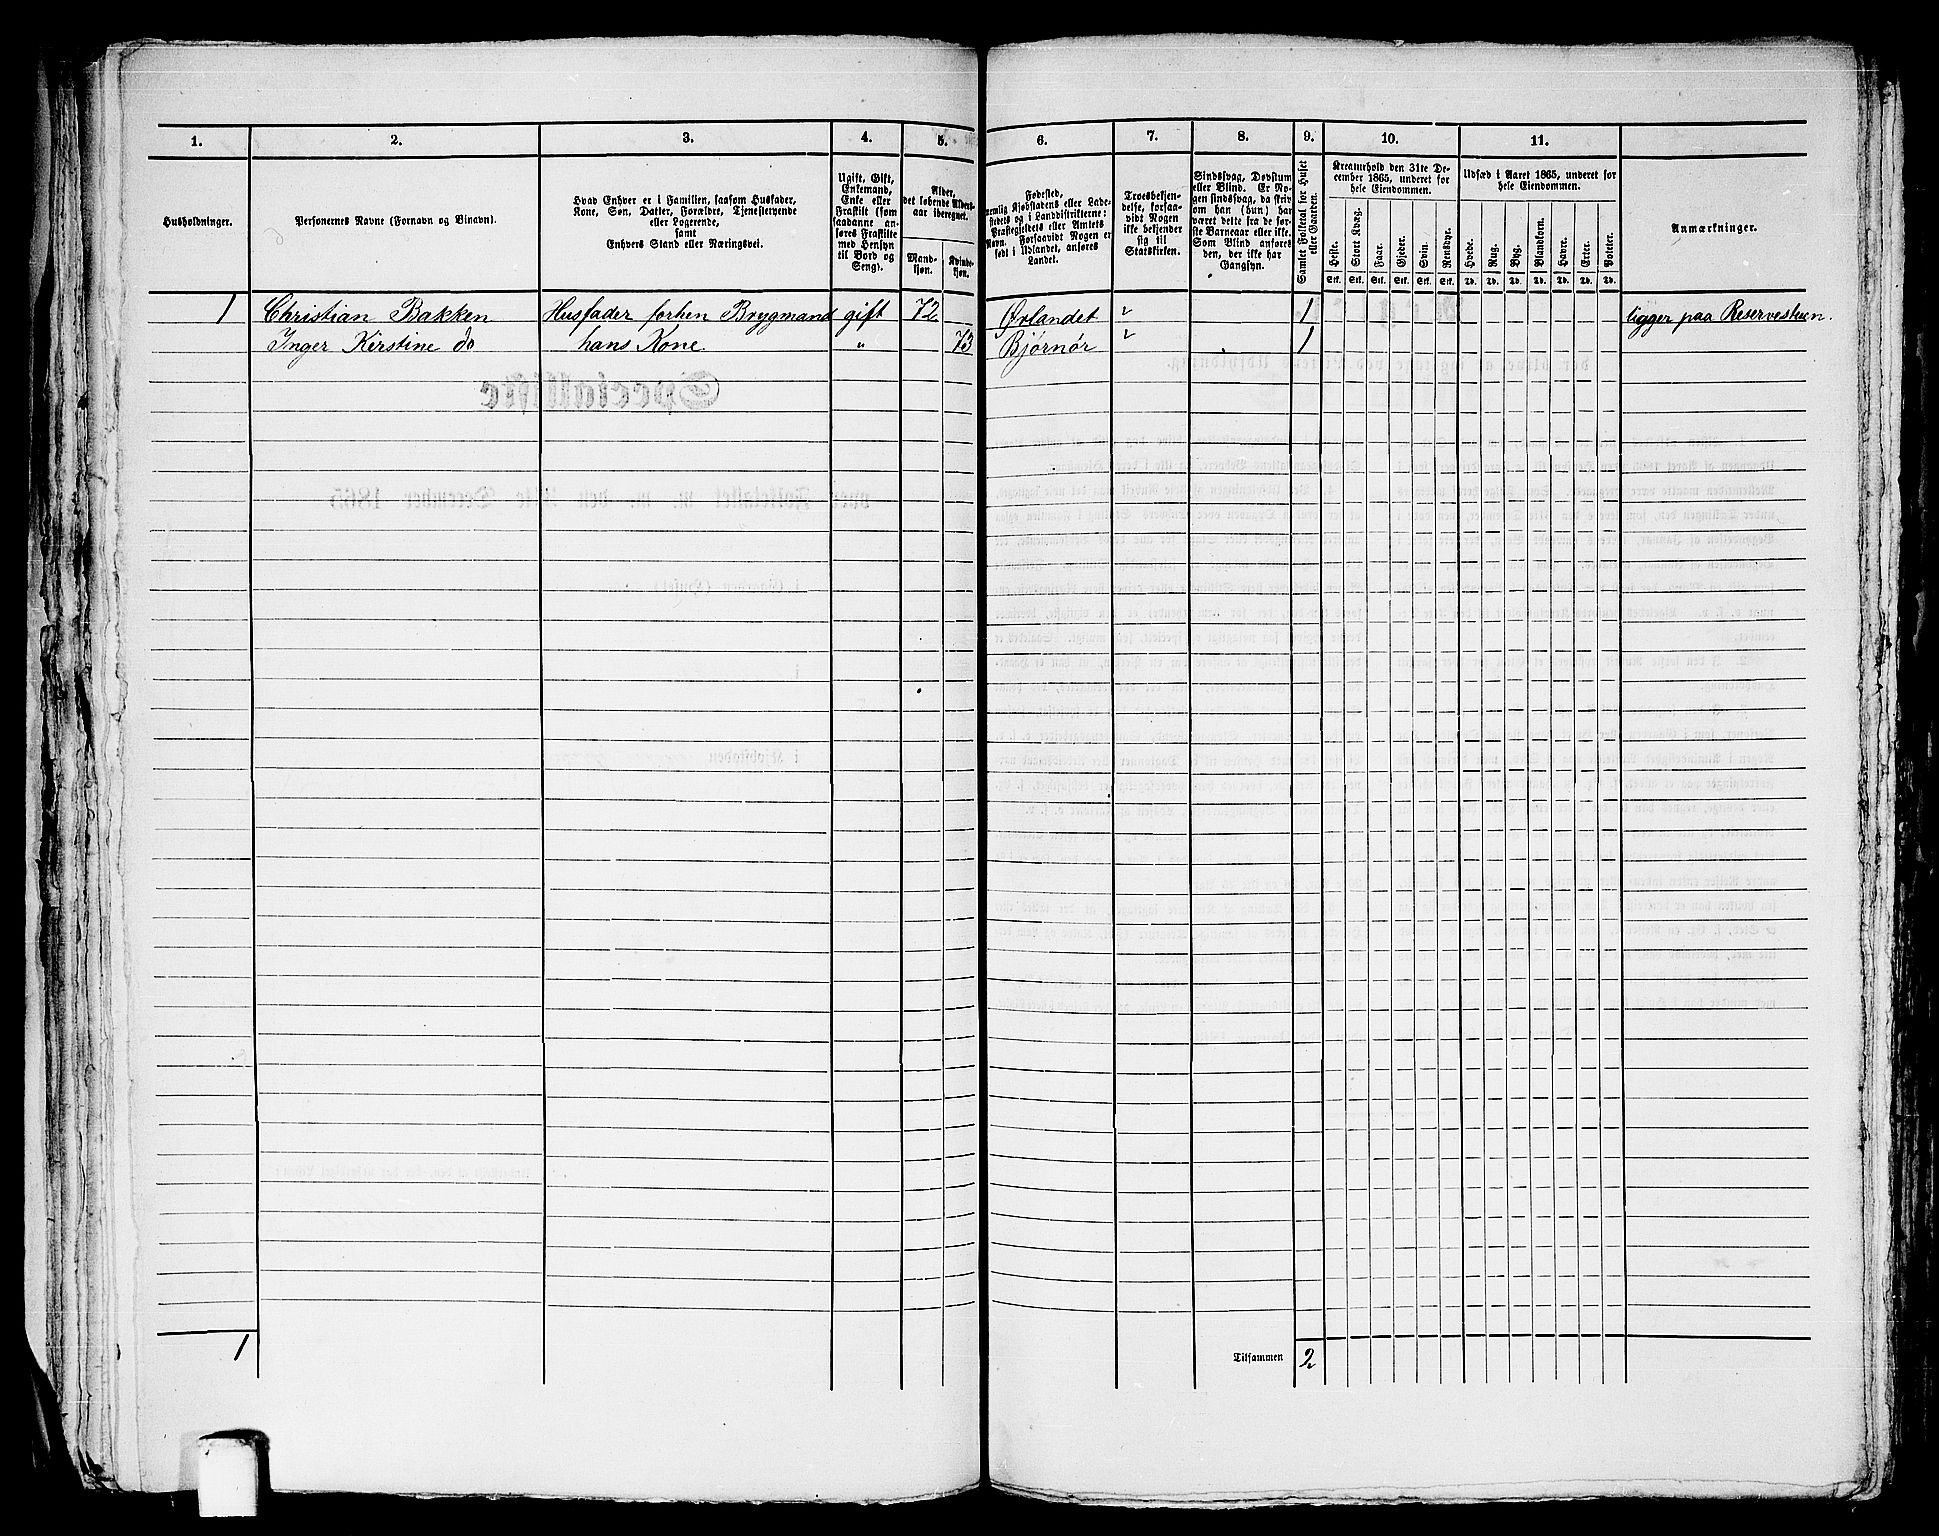 1. 2. 3. 4. 5. 6. 7. 8. 9. 10. 11.
Husholdninger.
Personernes Navne (Fornavn og Binavn).
Hvad Enhver er i Familien, saasom Husfader,
Kone, Søn, Datter, Forældre, Tjenestetyende
eller Logerende,
samt
Enhvers Stand eller Næringsvei.
Ugift, Gift,
Enkemand,
Enke eller
Fraskilt (som
saadanne an-
føres Fraskilte
med Hensyn
til Bord og
Seng).
Alder,
det løbende Alders-
aar iberegnet.
Mand-
kjøn.
Kvinde-
kjøn.
Fødested,
nemlig Kjøbstadens eller Lade-
stedets og i Landdistrikterne:
Præstegjeldets eller Amtets
Navn. Forsaavidt Nogen er
født i Udlandet, anføres
Landet.
Troesbekjen-
delse, forsaa-
vidt Nogen
ikke bekjender
sig til
Statskirken.
Sindssvag, Døvstum
eller Blind. Er No-
gen sindssvag, da skriv
om han (hun) har
været dette fra de før-
ste Barneaar eller ikke.
Som Blind anføres
den, der ikke har
Gangsyn.
Samlet Folketal for Huset eller Gaarden.
Kreaturhold den 31te De-
cember 1865, underet for
hele Eiendommen.
Heste. Stort Kvæg. Faar. Gjeder. Svin. Rensdyr.
Stk. Stk. Stk. Stk. Stk. Stk.
Udsæd i Aaret 1865, underet for
hele Eiendommen.
Hvede. Rug. Byg. Blandkorn. Havre. Erter. Poteter.
Td. Td. Td. Td. Td. Td. Td.
Anmærkninger.
1 Christian Bakken Husfader forhen Brygmand gift 72 Ørlandet " 1 ligger paa Reservestuen.
Inger Kirstine do hans Kone. " 73 Bjørnør " 1
1 Tilsammen 2